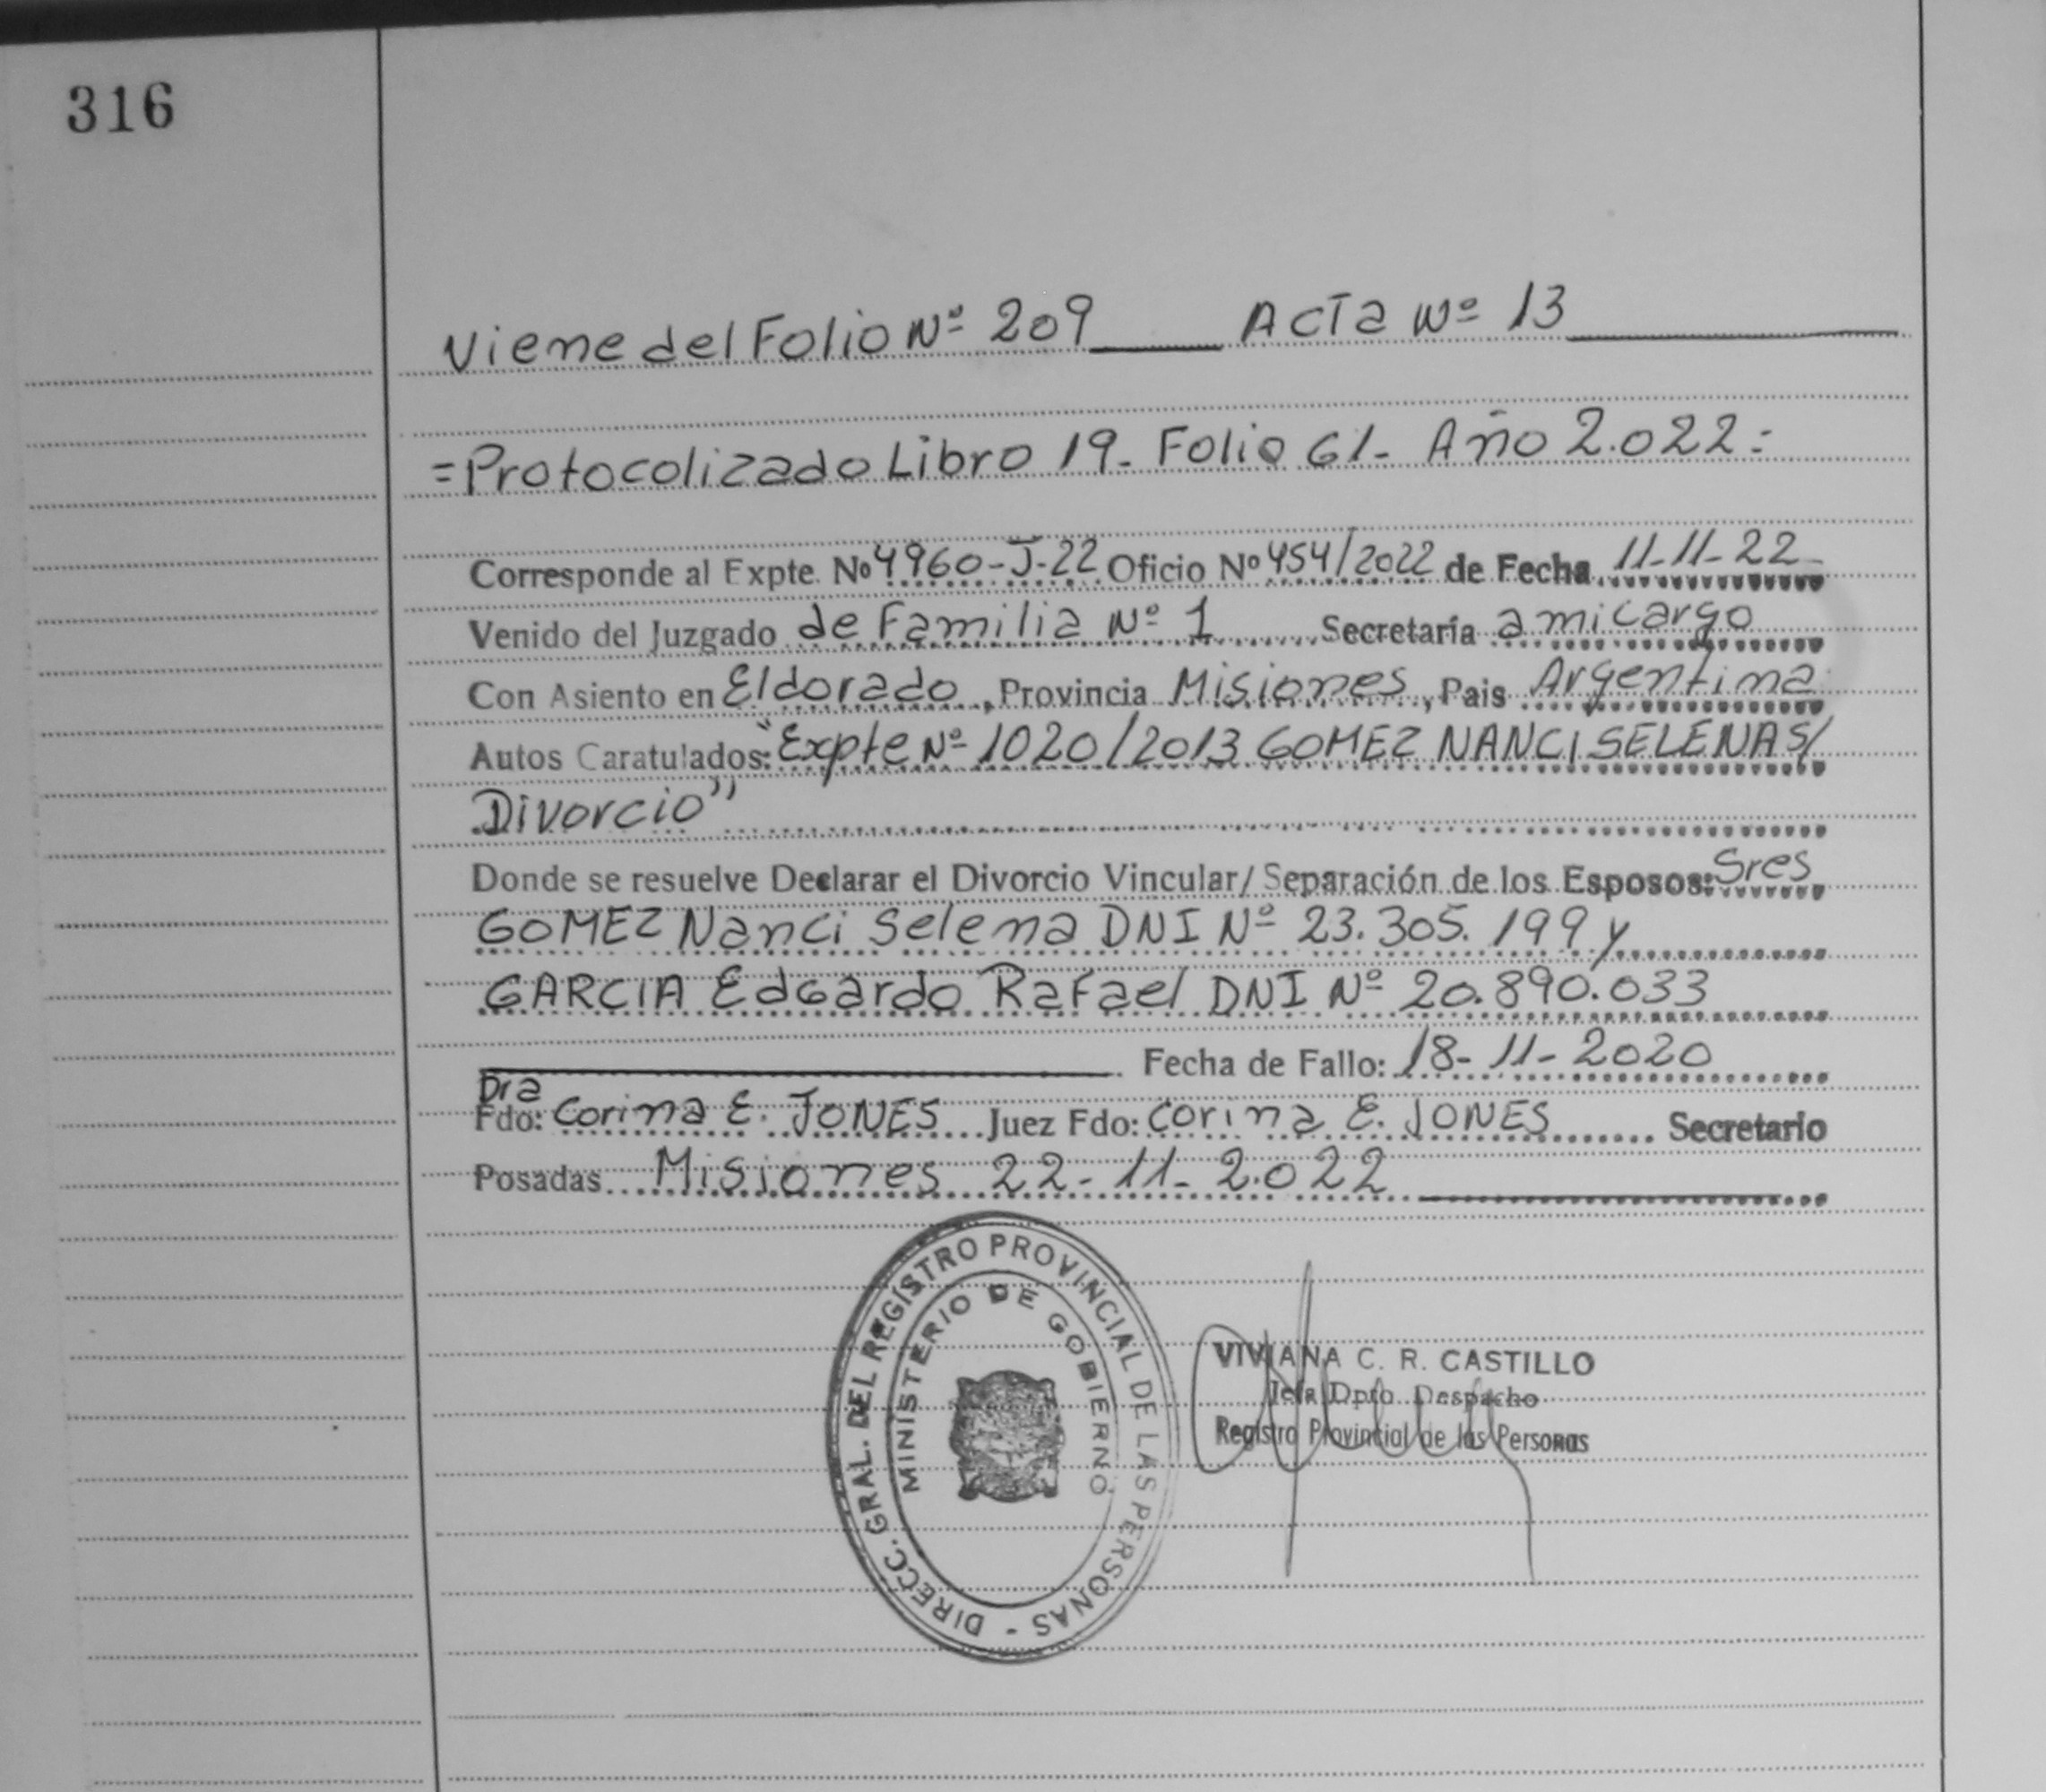 316
Viene del Folio Nº 209 Acta Nº 13
=Protocolizado Libro 19- Folio 61- Año 2.022=
Corresponde al Expte. Nº 4960-J-22 Oficio Nº 454/2022 de Fecha 11-11-22
Venido del Juzgado de Familia Nº 1 Secretaría a mi cargo
Con Asiento en Eldorado, Provincia Misiones, Pais Argentina
Autos Caratulados: "Expte Nº 1020/2013 GOMEZ NANCI SELENA S/
Divorcio"
Donde se resuelve Declarar el Divorcio Vincular/ Separación de los Esposos: Sres
GOMEZ Nanci Selena DNI Nº 23.305.199 y
GARCIA EdGardo Rafael DNI Nº 20.890.033
Fecha de Fallo: 18-11-2020
Dra
Fdo: Corina E. JONES Juez Fdo: Corina E. JONES Secretario
Posadas Misiones 22-11-2.022
DIRECC. GRAL. DEL REGISTRO PROVINCIAL DE LAS PERSONAS -
MINISTERIO DE GOBIERNO
VIVIANA C. R. CASTILLO
Jefa Dpto. Despacho
Registro Provincial de las Personas